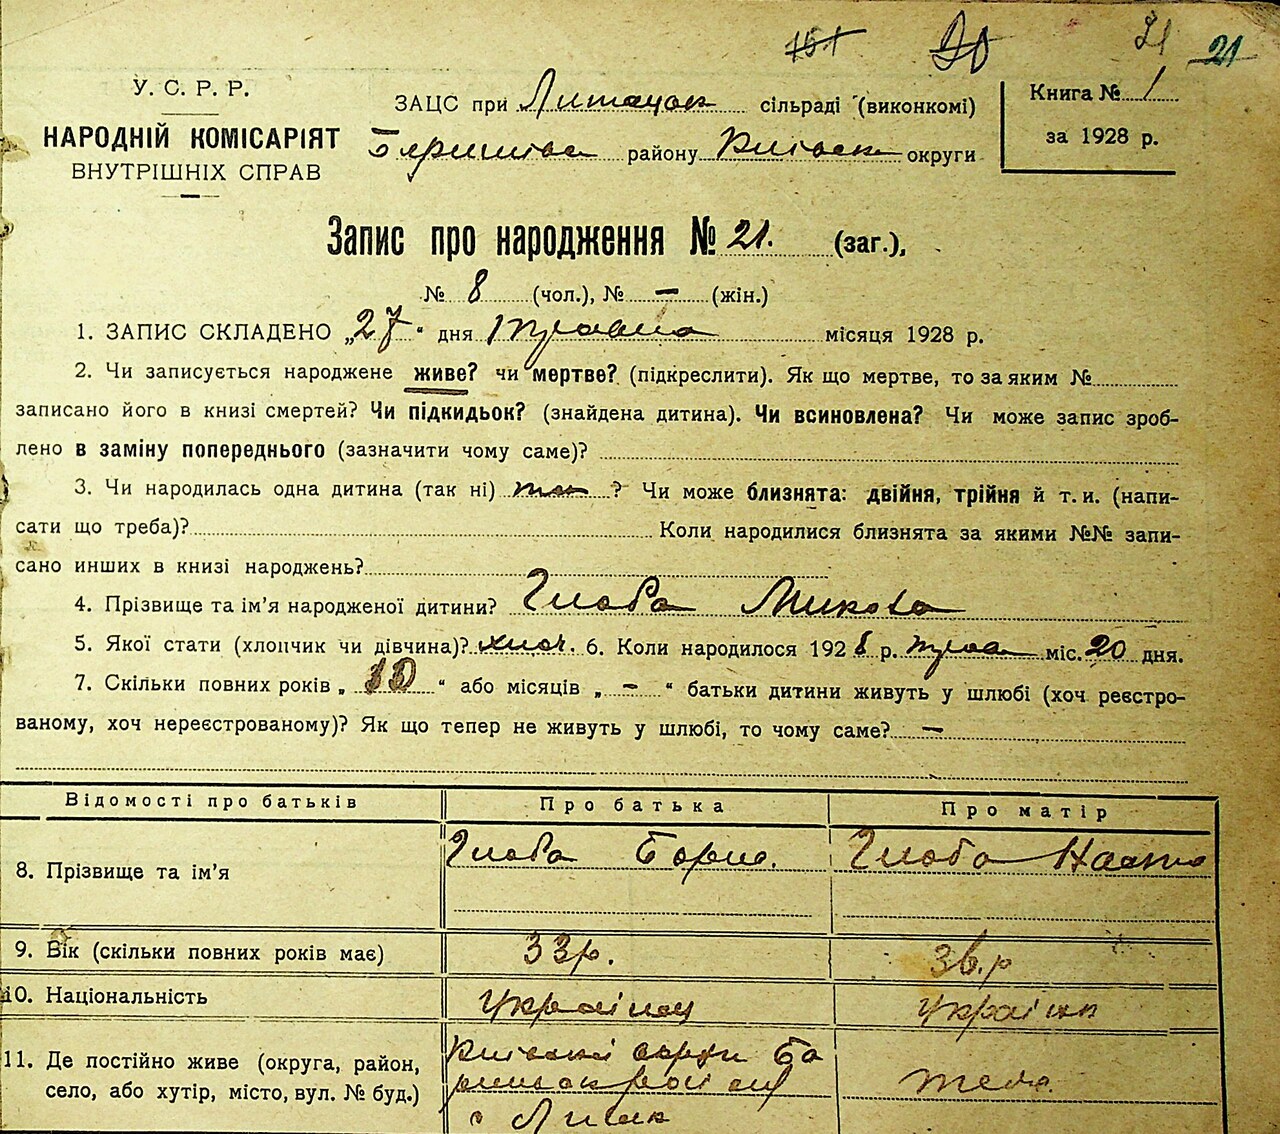 151 20 21 21
У. С. Р. Р.
НАРОДНІЙ КОМІСАРІЯТ
ВНУТРІШНІХ СПРАВ
ЗАЦС при сільраді (виконкомі)
району округи
Книга № 1
за 1928 р.
Запис про народження № 21. (заг.),
№ 8 (чол.), № – (жін.)
1. ЗАПИС СКЛАДЕНО „27“ дня травня місяця 1928 р.
2. Чи записується народжене живе? чи мертве? (підкреслити). Як що мертве, то за яким №
записано його в книзі смертей? Чи підкидьок? (знайдена дитина). Чи всиновлена? Чи може запис зроб-
лено в заміну попереднього (зазначити чому саме)?
3. Чи народилась одна дитина (так ні) так ? Чи може близнята: двійня, трійня й т. и. (напи-
сати що треба)? Коли народилися близнята за якими №№ запи-
сано инших в книзі народжень?
4. Прізвище та ім’я народженої дитини? Глоба Микола
5. Якої стати (хлопчик чи дівчина)? хлоп. 6. Коли народилося 1928 р. трав міс. 20 дня.
7. Скільки повних років „ 10 “ або місяців „ – “ батьки дитини живуть у шлюбі (хоч реєстро-
ваному, хоч нереєстрованому)? Як що тепер не живуть у шлюбі, то чому саме? —
Відомості про батьків Про батька Про матір
8. Прізвище та ім’я Глоба Борис. Глоба
9. Вік (скільки повних років має) 33р.
10. Національність українец українк
11. Де постійно живе (округа, район,
село, або хутір, місто, вул. № буд.)